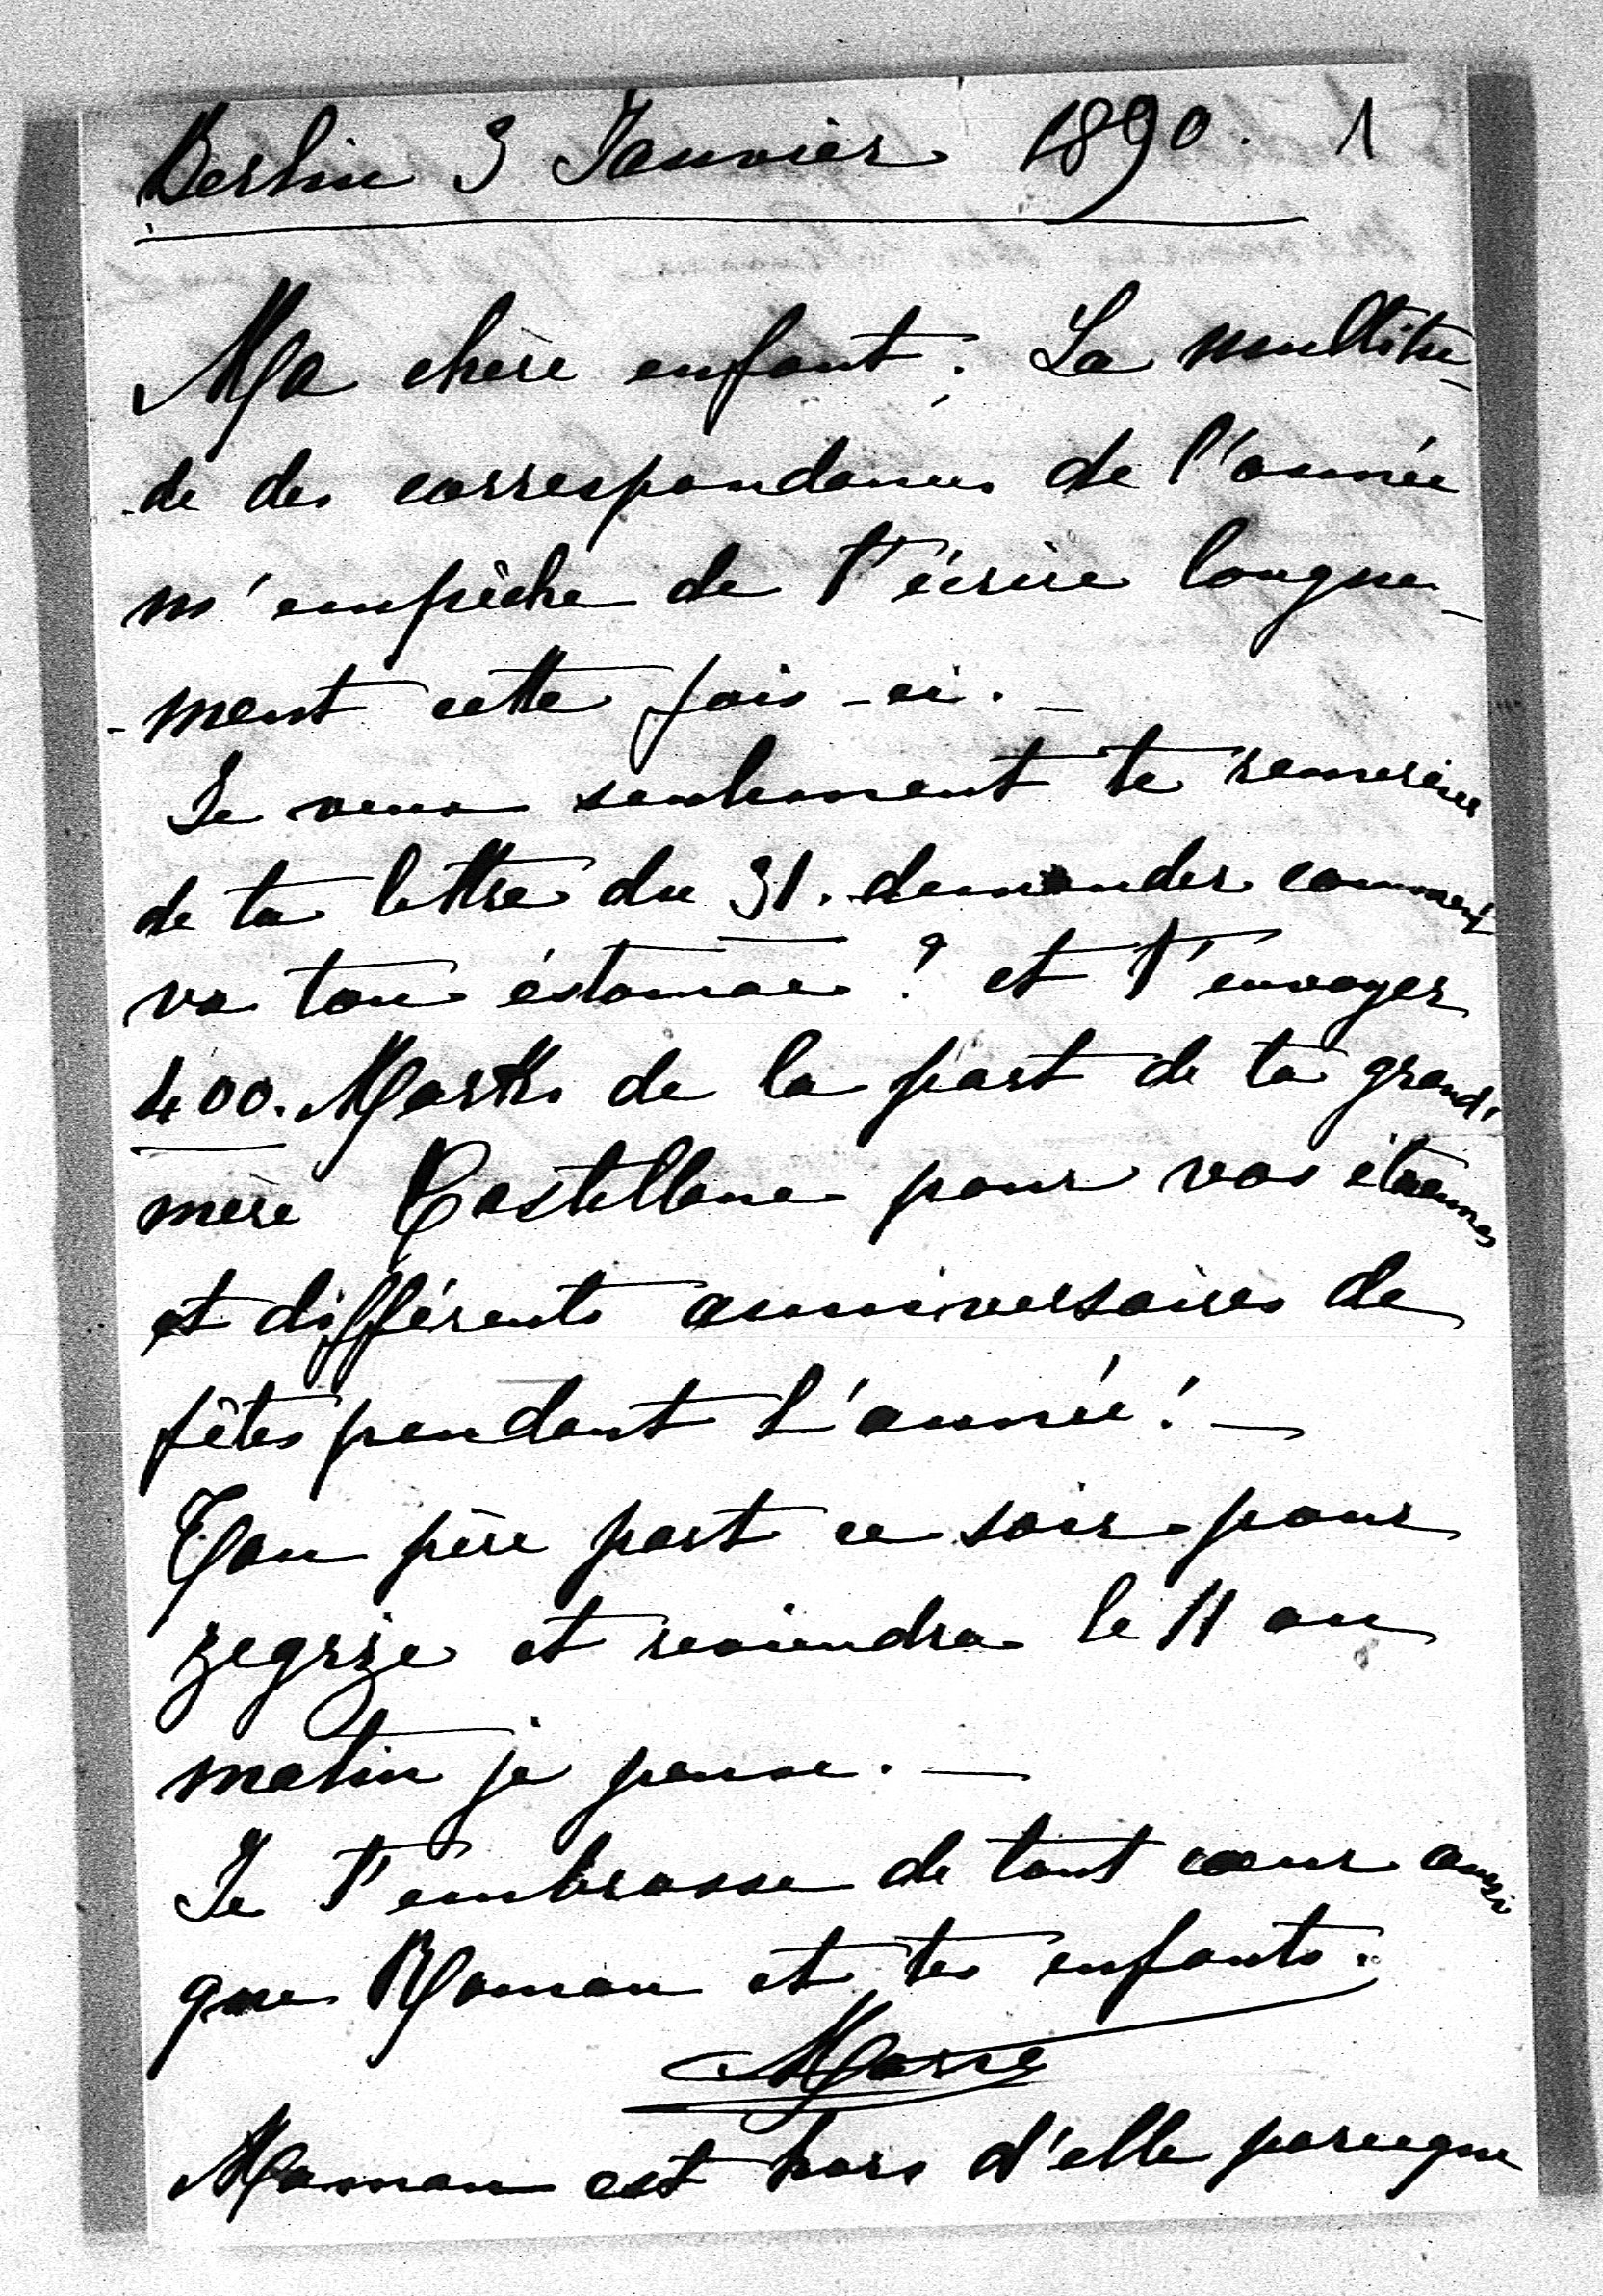 Berlin 3 Janvier 1890. 1
Ma chère enfant. La multitu-
-de des correspondances de l'année
m'empêche de t'écrire longue-
-ment cette fois-ci. -
Je veux seulement te remercier
de ta lettre du 31. demander comment
va ton éstomac ? et t'envoyer
400. Marks de la part de ta grand'
mère Castellane pour vos étrennes
et différents anniversaires de
fêtes pendant l'année! -
Ton père part ce soir pour
Zegrze et reviendra le 11 au
matin je pense. -
Je t'embrasse de tout cœur ainsi
que Roman et tes enfants.
Marie
Maman est hors d'elle parceque